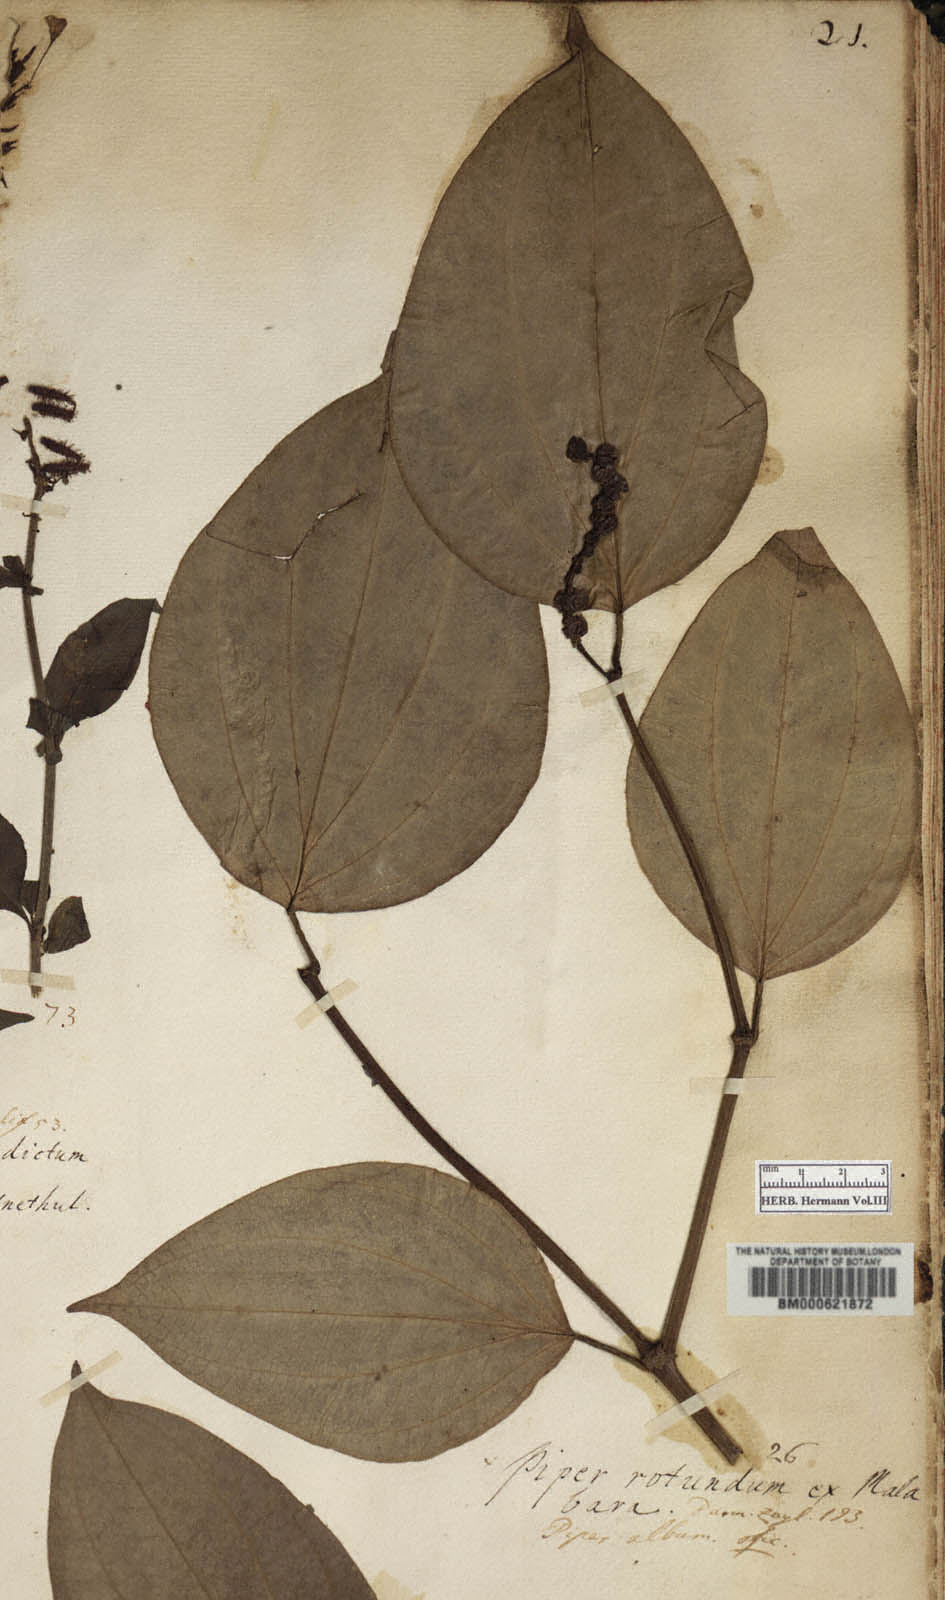 21.
73
53.
dictum
nethul.
mm 1 2 3
HERB. Hermann Vol.III
THE NATURAL HISTORY MUSEUM,LONDON
DEPARTMENT OF BOTANY
BM000621872
26
Piper rotundum ex Mala
bara. Burm. zeyl. 193.
Piper album. offic.